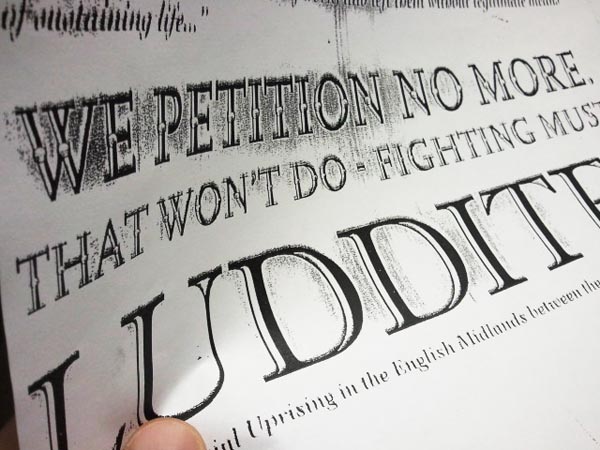 of sustaining life..."
left them without legitimate means
WE PETITION NO MORE,
THAT WON'T DO - FIGHTING MUST
LUDDITE
Uprising in the English Midlands between the